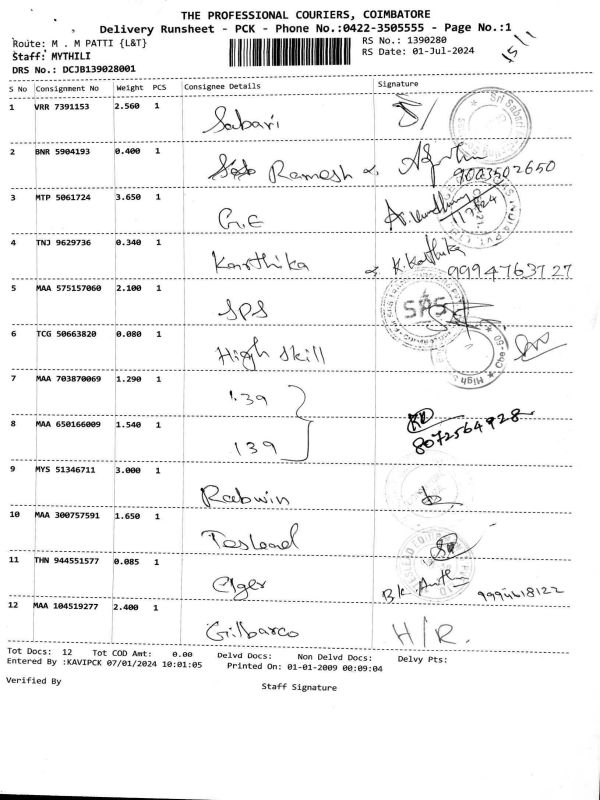 THE PROFESSIONAL COURIERS, COIMBATORE
Delivery Runsheet - PCK - Phone No.:0422-3505555 - Page No.:1
Route: M . M PATTI {L&T} RS No.: 1390280
Staff: MYTHILI RS Date: 01-Jul-2024
15/1
DRS No.: DCJB139028001
S No Consignment No Weight PCS Consignee Details Signature
1 VRR 7391153 2.560 1 Sabari
Sri Sabari
2 BNR 5904193 0.400 1 Ramesh
9003502650
3 MTP 5061724 3.650 1 G.E
11/7/24
4 TNJ 9629736 0.340 1 Karthika K. Karthika
9994763727
5 MAA 575157060 2.100 1 SPS
SPS
6 TCG 50663820 0.080 1 High skill
7 MAA 703870069 1.290 1 139
8 MAA 650166009 1.540 1 139
8072564928
9 MYS 51346711 3.000 1 Rabwin
10 MAA 300757591 1.650 1 Teslead
11 THN 944551577 0.085 1 Elger
9994618122
12 MAA 104519277 2.400 1 Gilbarco H/R.
Tot Docs: 12 Tot COD Amt: 0.00 Delvd Docs: Non Delvd Docs: Delvy Pts:
Entered By :KAVIPCK 07/01/2024 10:01:05 Printed On: 01-01-2009 00:09:04
Verified By Staff Signature